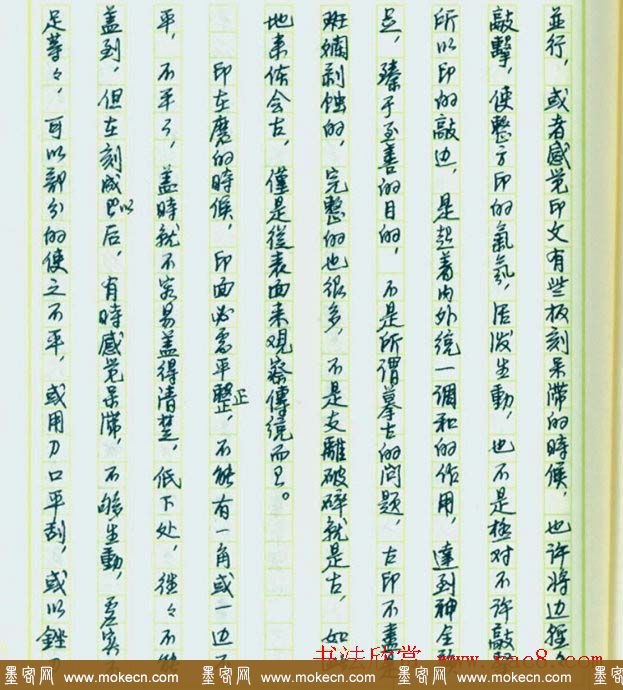 並行，或者感觉印文有些板刻呆滞的時候，也许將边
敲擊，使整方印的氣氛，活潑生動，也不是极对不许敲
所以印的敲边，是起著内外统一调和的作用，達到神全
足，臻于至善的目的，不是所谓摹古的问题，古印不盡
斑斓剥蚀的，完整的也很多，不是支離破碎就是古，如
地来体会古，僅是從表面来观察傳统而已。
印在磨的時候，印面必须平整正，不能有一角或一边
平，不平了，盖時就不容易盖得清楚，低下处，往々不能
盖到，但在刻成以后，有時感觉呆滞，不够生動，虚实
足等々，可以部分的使之不平，或用刀口平刮，或以銼
书法欣赏 www.yac8.com
墨客网 www.mokecn.com 墨客网 www.mokecn.com 墨客网 www.mokecn.com